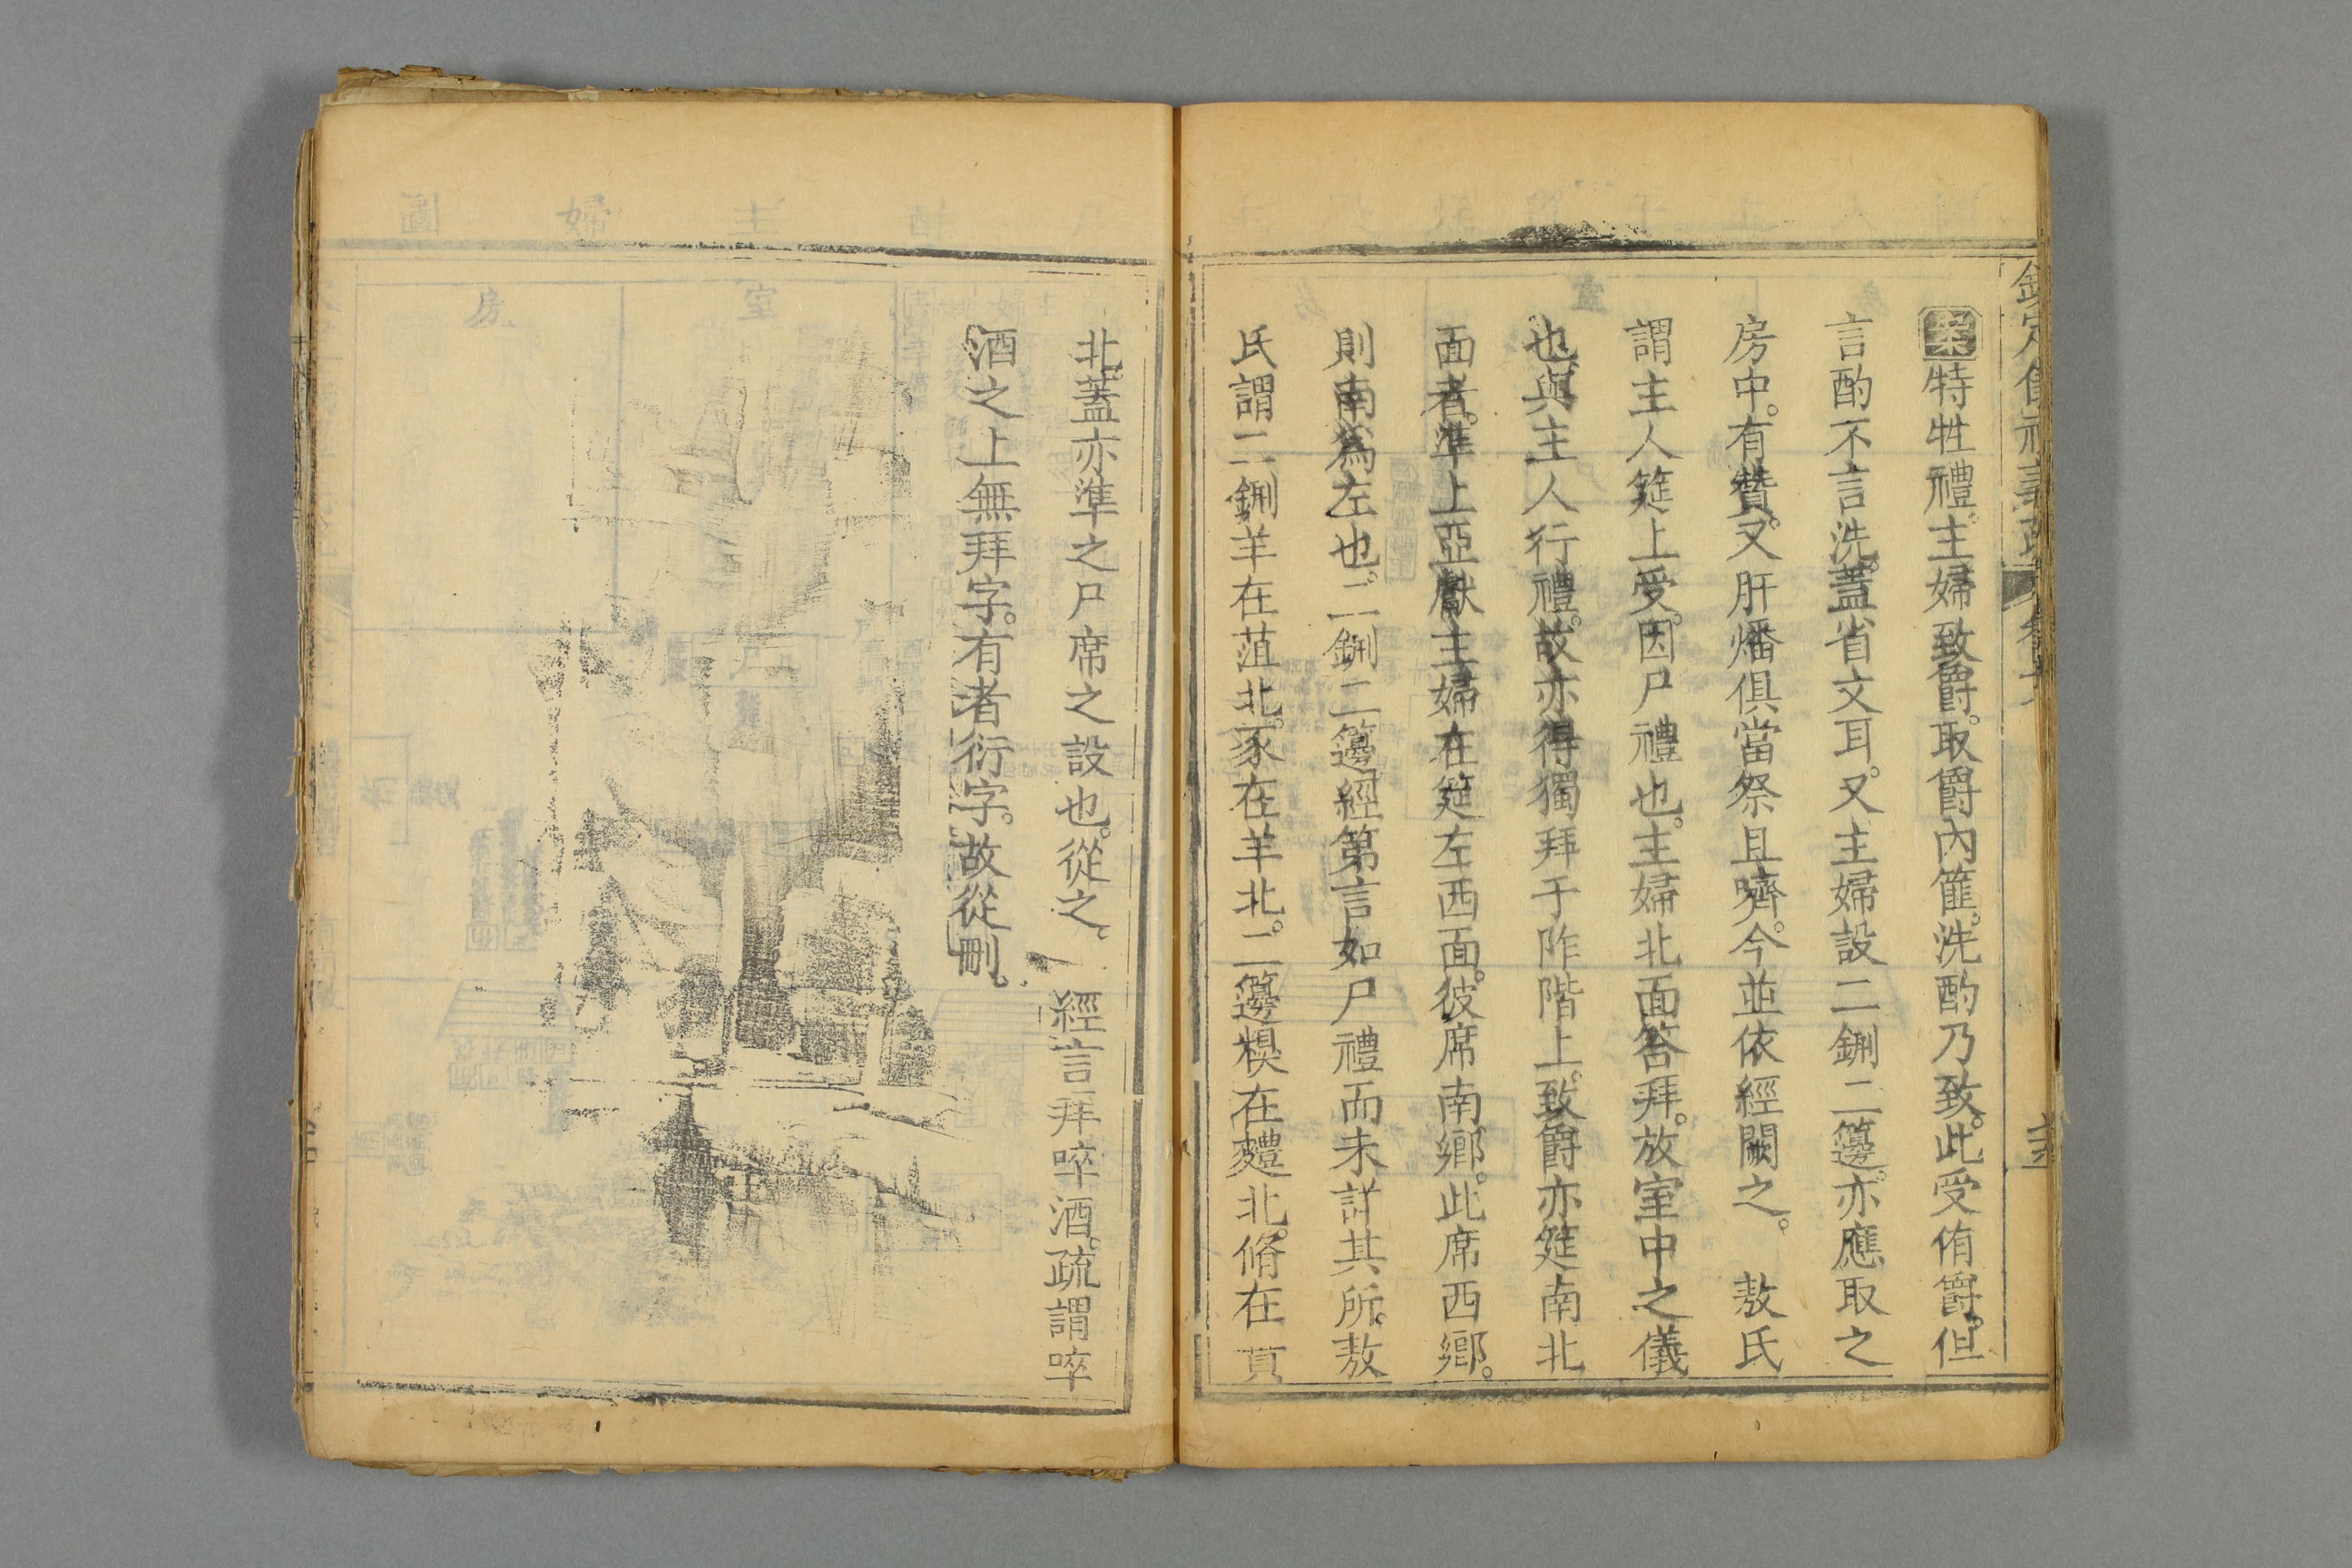 欽定儀禮義疏
案特牲禮。主婦致爵。取爵內篚。洗酌乃致。此受侑爵。但
言酌不言洗。蓋省文耳。又主婦設二鉶二籩。亦應取之
房中。有贊。又肝燔俱當祭且嚌。今並依經闕之。 敖氏
謂主人筵上受。因尸禮也。主婦北面答拜。放室中之儀
也。與主人行禮。故亦得獨拜于阼階上。致爵亦筵南北
面者。準上亞獻主婦在筵左西面。彼席南鄉。此席西鄉。
則南為左也。二鉶二籩。經第言如尸禮而未詳其所。敖
氏謂二鉶羊在菹北。豕在羊北。二籩糗在麷北。脩在蕡
北。蓋亦準之尸席之設也。從之。 經言拜啐酒。疏謂啐
酒之上無拜字。有者衍字。故從刪。